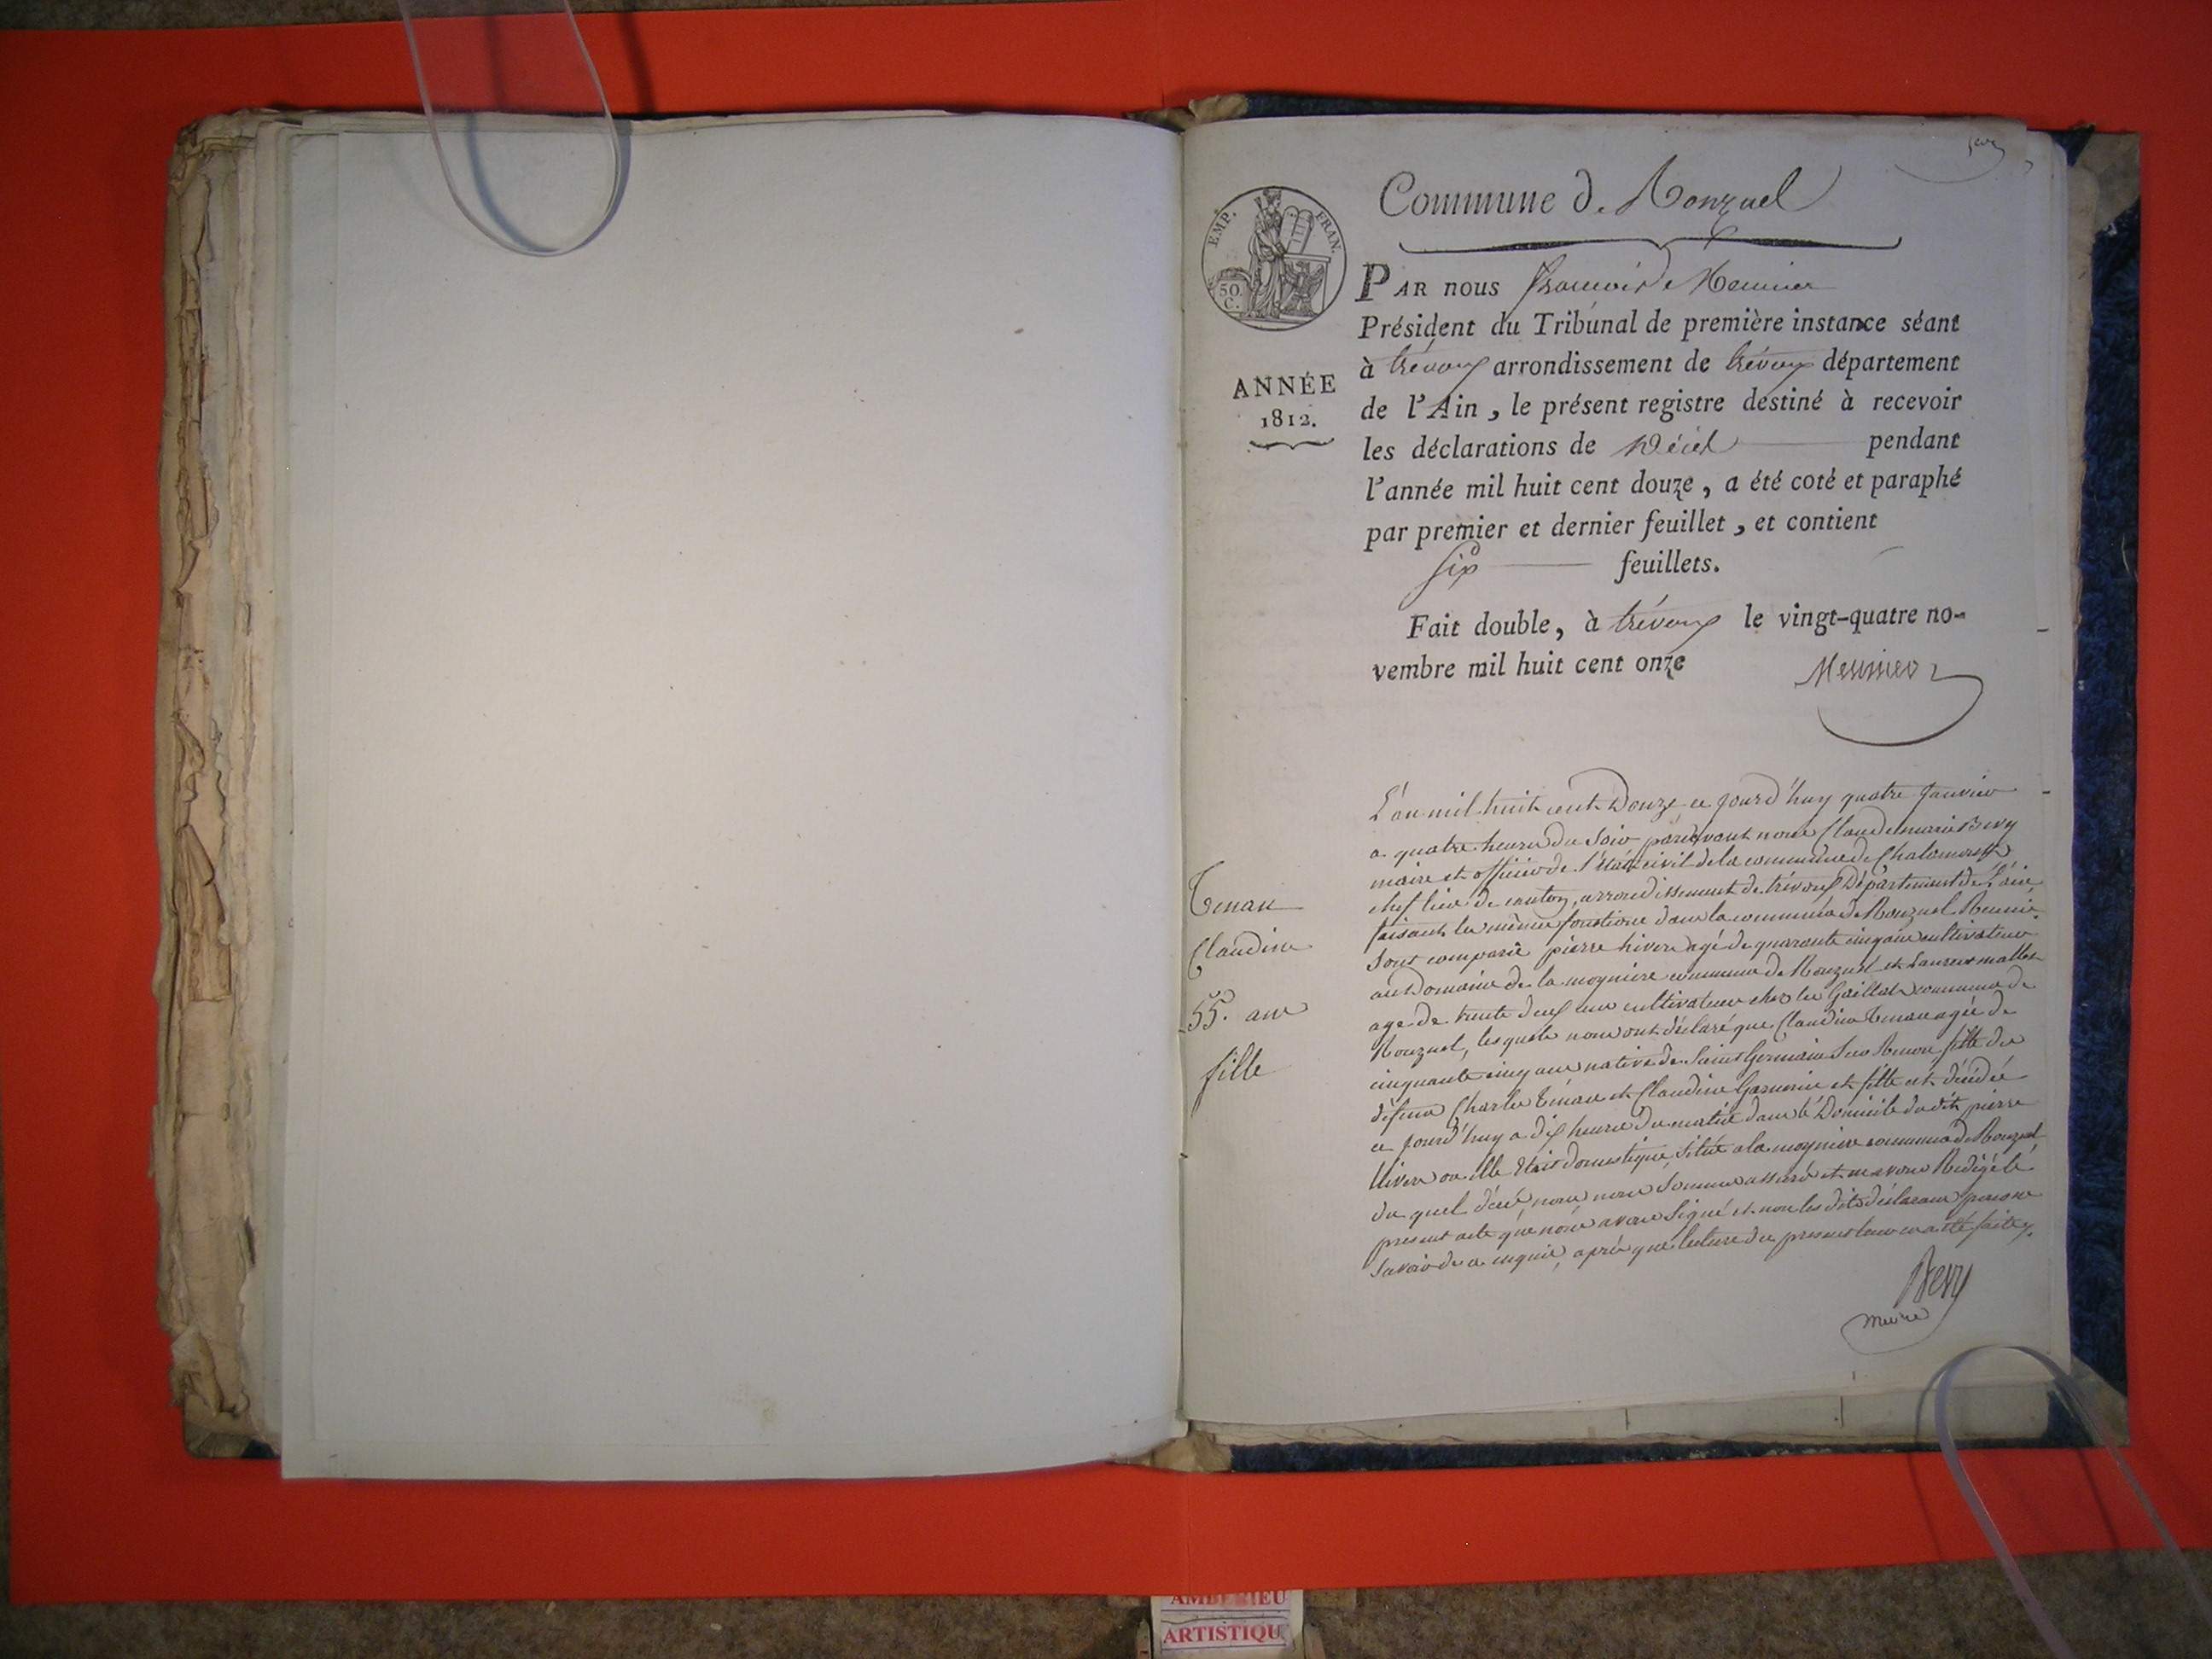 Commune de Ronzuel
EMP. FRAN.
50 C.
PAR nous François Meunier
Président du Tribunal de première instance séant
à trévoux arrondissement de trévoux département
de l'Ain, le présent registre destiné à recevoir
les déclarations de Décès pendant
l'année mil huit cent douze, a été coté et paraphé
par premier et dernier feuillet, et contient
six feuillets.
Fait double, à trévoux le vingt-quatre no-
vembre mil huit cent onze
Meunier
ANNÉE
1812.
Tenan
Claudine
55. ans
fille
L'an mil huit cent Douze ce jourd'huy quatre Janvier
a quatre heures du Soir pardevant nous Claude marie
maire et officier de l'état civil de la commune de Chalamont
chef lieu de canton, arrondissement de trévoux Département de l'ain
faisant les mêmes fonctions dans la commune de Ronzuel Reunie.
Sont comparus pierre hivers agé de quarante cinq ans cultivateur
au Domaine de la moyniere commune de Ronzuel et Laurent
agé de trente deux ans cultivateur chez les commune de
Ronzuel, lesquels nous ont déclaré que Claudine Tenan agée de
cinquante cinq ans native de Saint Germain Sur Renon fille de
défunt Charles Tenan et Claudine Garnerin et fille est décédée
ce jourd'huy a dix heures du matin dans le Domicile du dit pierre
hivers ou elle Etait domestique, Situé a la moyniere commune de Ronzuel
du quel décès, nous nous Sommes assuré et en avons Redigé le
present acte que nous avons Signé et non les dits déclarans pour ne
Savoir de ce enquis, après que lecture du present leur en a été faite.
maire
AMBERIEU
ARTISTIQU